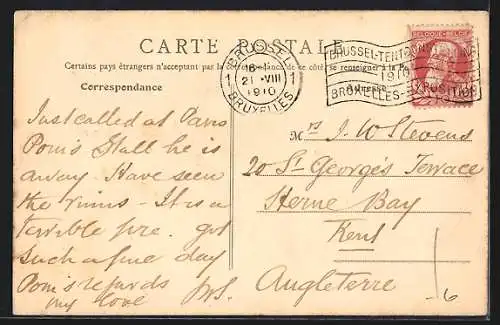 CARTE POSTALE
Certains pays étrangers n'acceptant pas la correspondance de ce côté se renseigner à la
Correspondance
BRUXELLES
1 21 -VIII 1
1910
BRUXELLES
BRUSSEL-TENTOONSTELLING
1910
BRUXELLES-EXPOSITION
BELGIQUE-BELGIË
Adresse
Just called at Paris
Pom's Stall he is
away. Have seen
the ruins - It is a
terrible fire. got
such a fine day
Pom's regards
my love JWS.
Mrs J. W Stevens
20 St. George's Terrace
Herne Bay
Kent
Angleterre
6